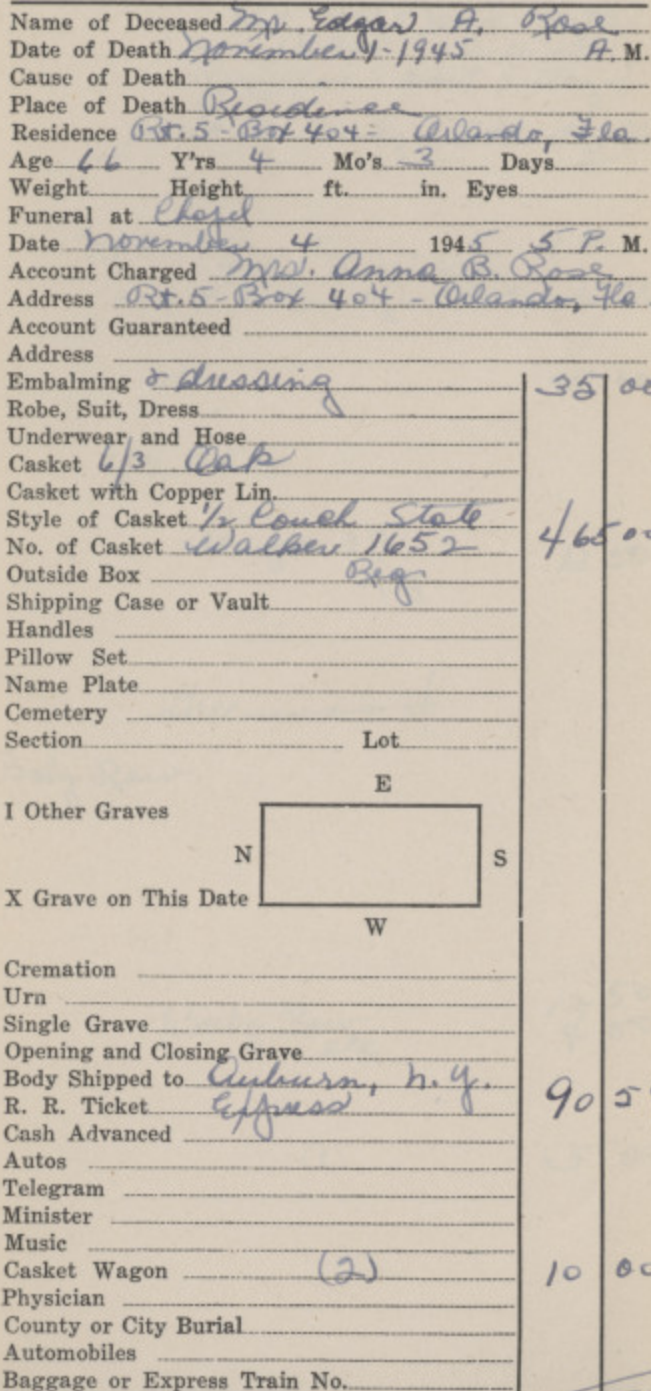 Name of Deceased Mr. Edgar A. Rose
Date of Death November 1-1945 A. M.
Cause of Death
Place of Death Residence
Residence Rt. 5 - Box 404 - Orlando, Fla.
Age 66 Y'rs 4 Mo's 3 Days
Weight Height ft. in. Eyes
Funeral at Chapel
Date November 4 1945 5 P. M.
Account Charged Mrs. Anna B. Rose
Address Rt. 5 - Box 404 - Orlando, Fla
Account Guaranteed
Address
Embalming & dressing 35 00
Robe, Suit, Dress
Underwear and Hose
Casket 6/3 Oak
Casket with Copper Lin.
Style of Casket 1/2 Couch State
No. of Casket Walker 1652 465 00
Outside Box Reg
Shipping Case or Vault
Handles
Pillow Set
Name Plate
Cemetery
Section Lot
E
I Other Graves
N S
X Grave on This Date
W
Cremation
Urn
Single Grave
Opening and Closing Grave
Body Shipped to Auburn, N. Y.
R. R. Ticket Express 90 5
Cash Advanced
Autos
Telegram
Minister
Music
Casket Wagon (2) 10 00
Physician
County or City Burial
Automobiles
Baggage or Express Train No.